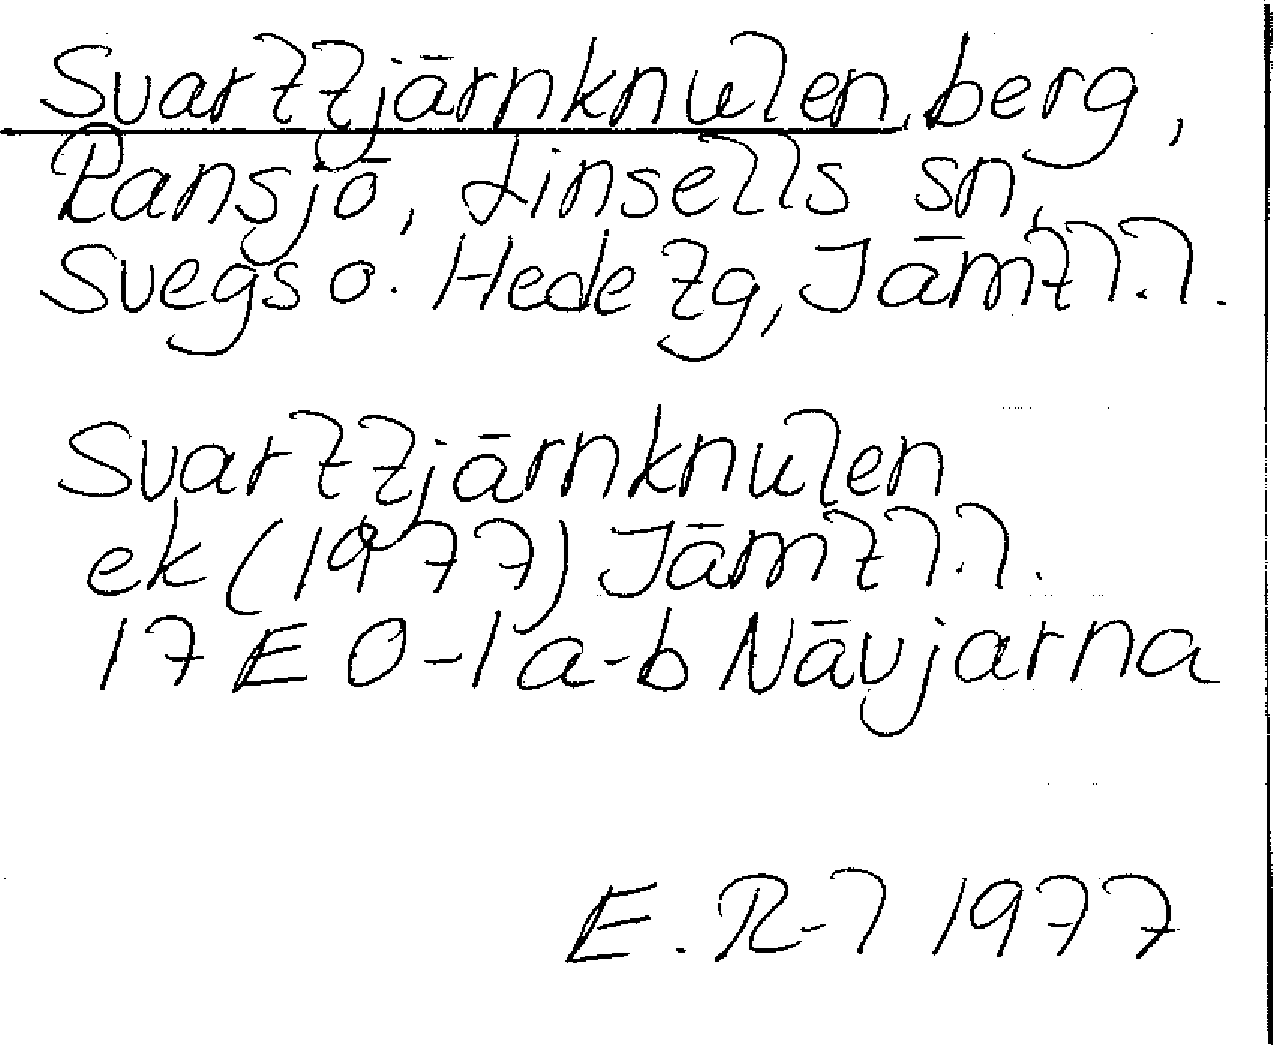 Svarttjärnknulen, berg,
Ransjö, Linsells sn,
Svegs o. Hede tg, Jämtl.l.
Svarttjärnknulen
ek (1977) Jämtl.l.
17 E 0-1 a-b Nävjarna
E. R-l 1977